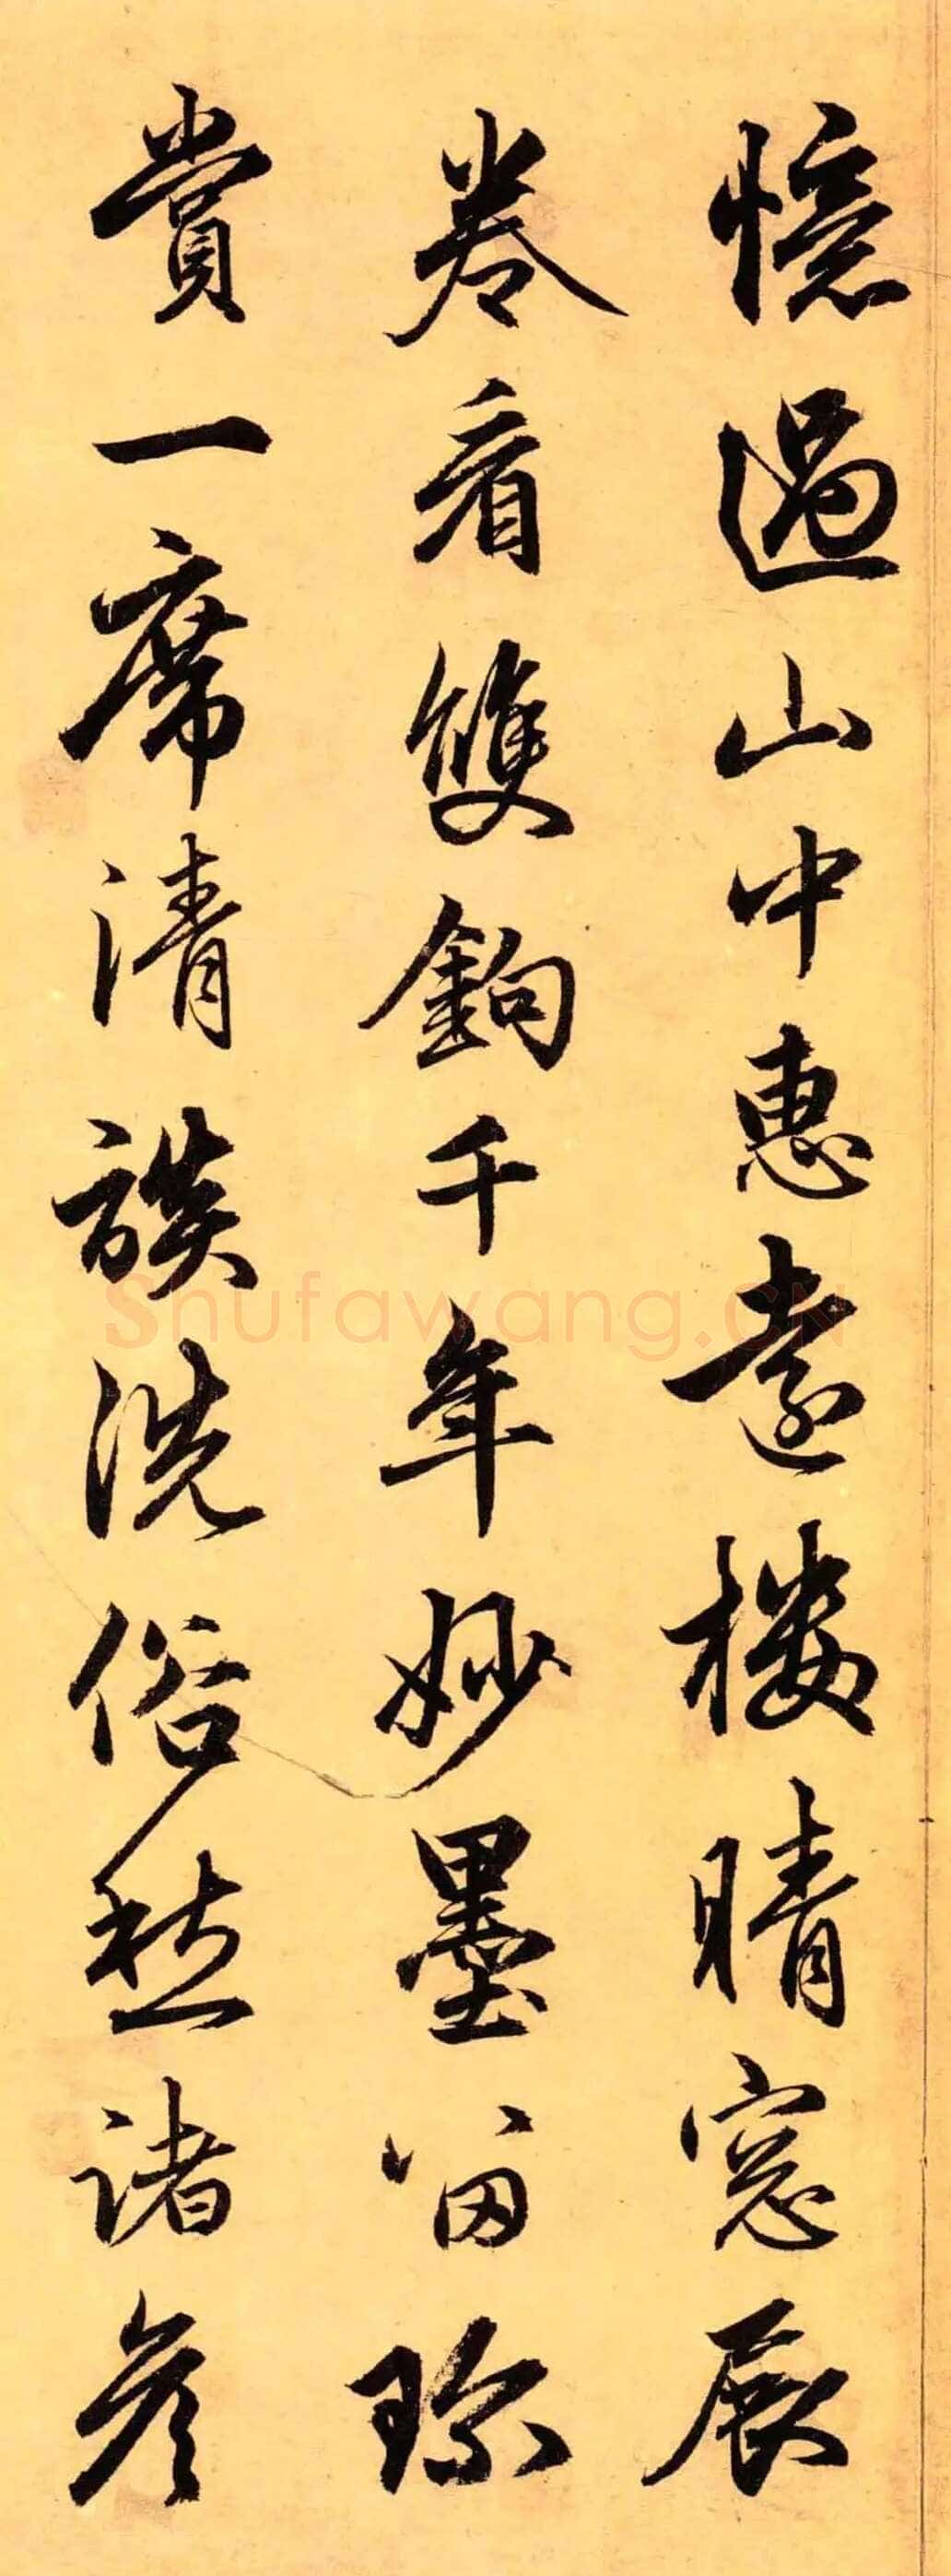 憶過山中惠遠樓晴窓展
卷看雙鉤千年妙墨留珎
賞一席清談洗俗愁諸彥
Shufawang.CN